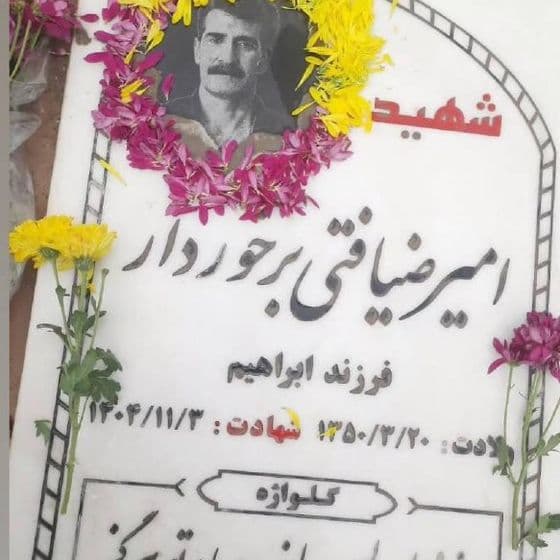 شهید
امیر ضیافتی برخوردار
فرزند ابراهیم
ولادت: ۱۳۵۰/۳/۲۰ شهادت: ۱۴۰۴/۱۱/۳
گلواژه